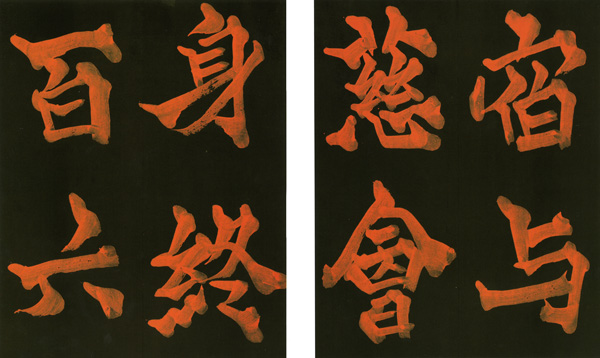 宿与
慈會
身終
百六